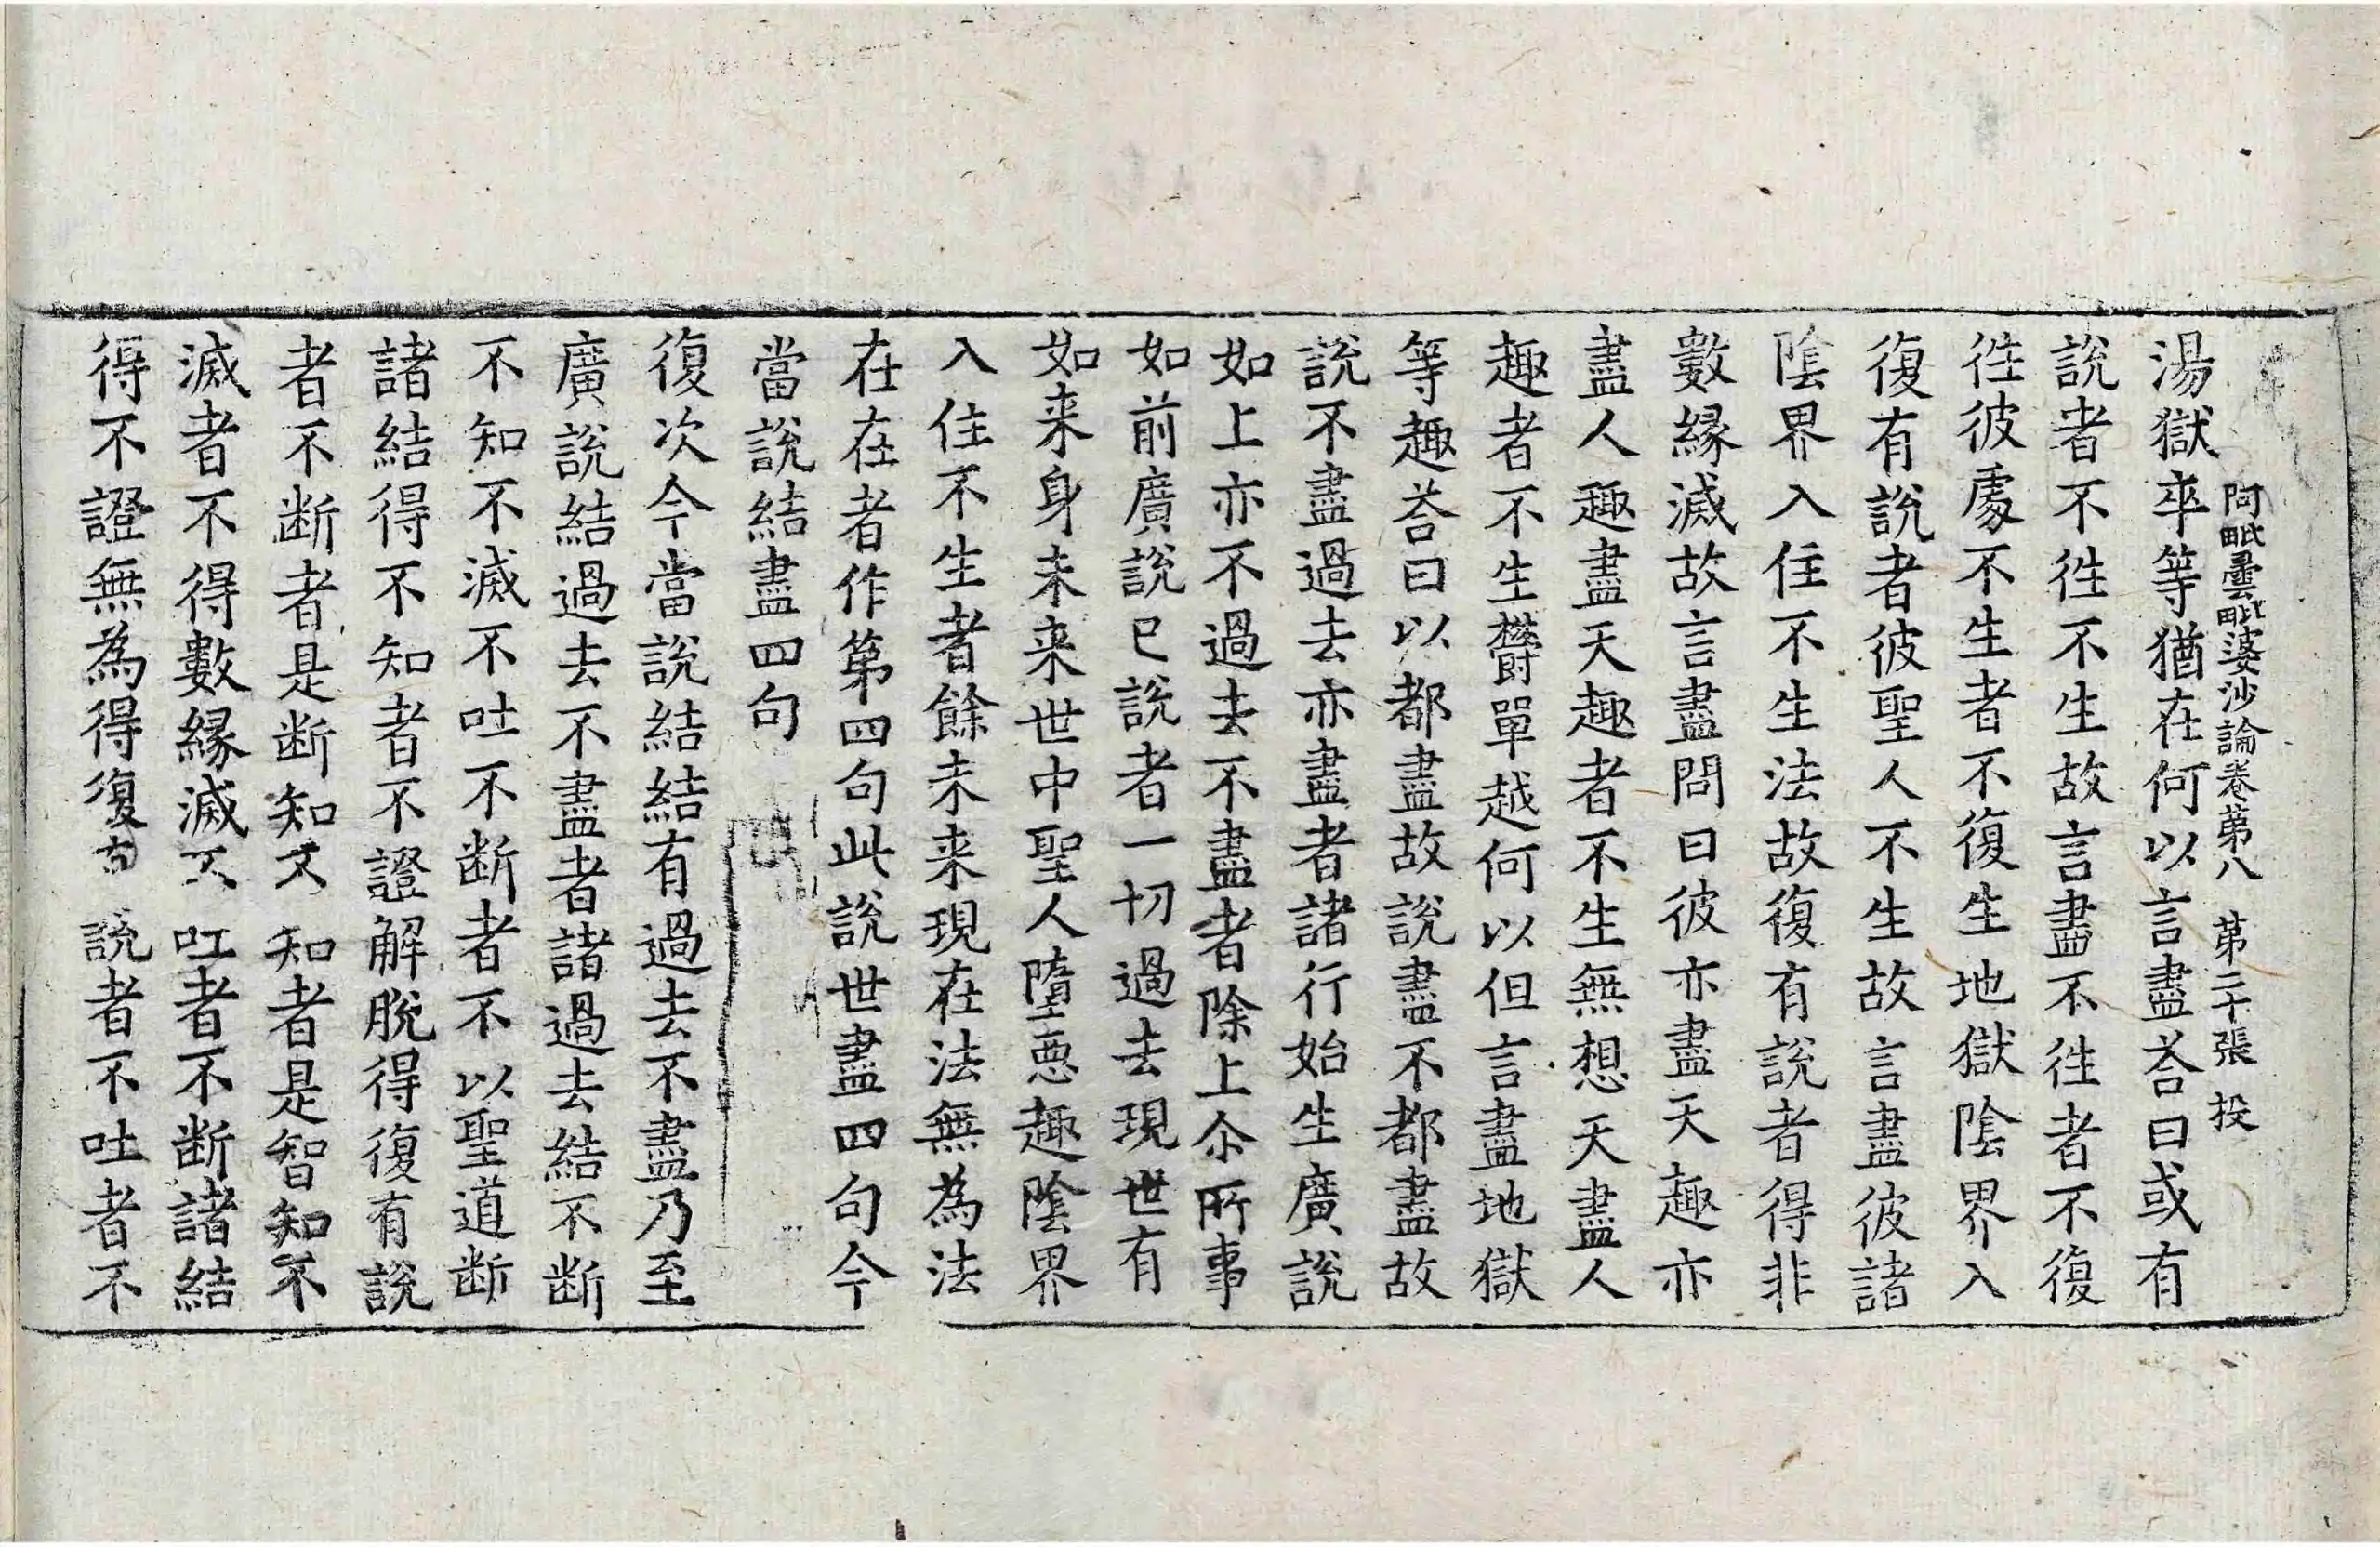 阿毗曇毗婆沙論卷苐八　苐二十張　投
湯獄卒等猶在何以言盡荅曰或有
說者不徃不生故言盡不徃者不復
徃彼處不生者不復生地獄陰界入
復有說者彼聖人不生故言盡彼諸
陰界入住不生法故復有說者得非
數緣滅故言盡問曰彼亦盡天趣亦
盡人趣盡天趣者不生無想天盡人
趣者不生欝單越何以但言盡地獄
等趣荅曰以都盡故說盡不都盡故
說不盡過去亦盡者諸行始生廣說
如上亦不過去不盡者除上尒所事
如前廣說已說者一切過去現世有
如来身未来世中聖人墮惡趣陰界
入住不生者餘未来現在法無為法
在在者作第四句此說世盡四句今
當說結盡四句
復次今當說結結有過去不盡乃至
廣說結過去不盡者諸過去結不断
不知不滅不吐不断者不以聖道断
諸結得不知者不證解脫得復有說
者不断者是断知不知者是智知不
滅者不得數緣滅不吐者不断諸結
得不證無為得復有說者不吐者不